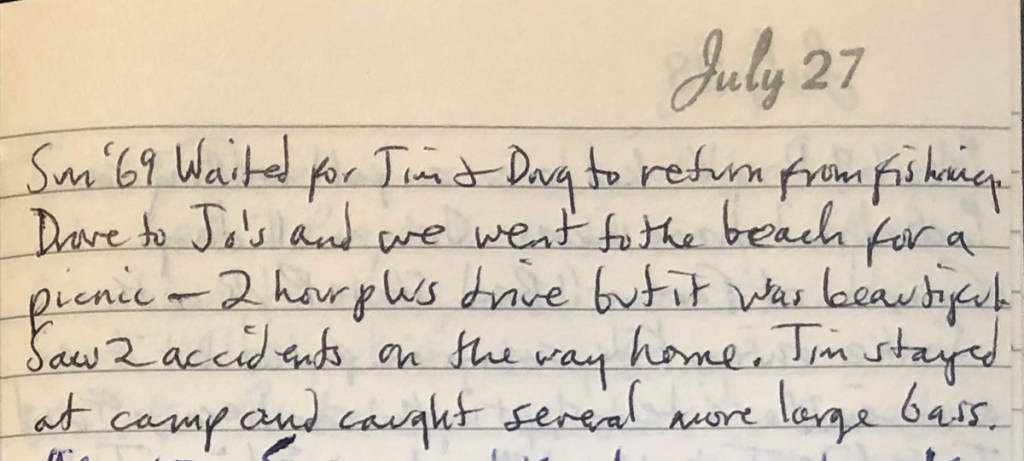 July 27
Sun '69 Waited for Tim & Doug to return from fishing.
Drove to Jo's and we went to the beach for a
picnic — 2 hour plus drive but it was beautiful
Saw 2 accidents on the way home. Tim stayed
at camp and caught several more large bass.